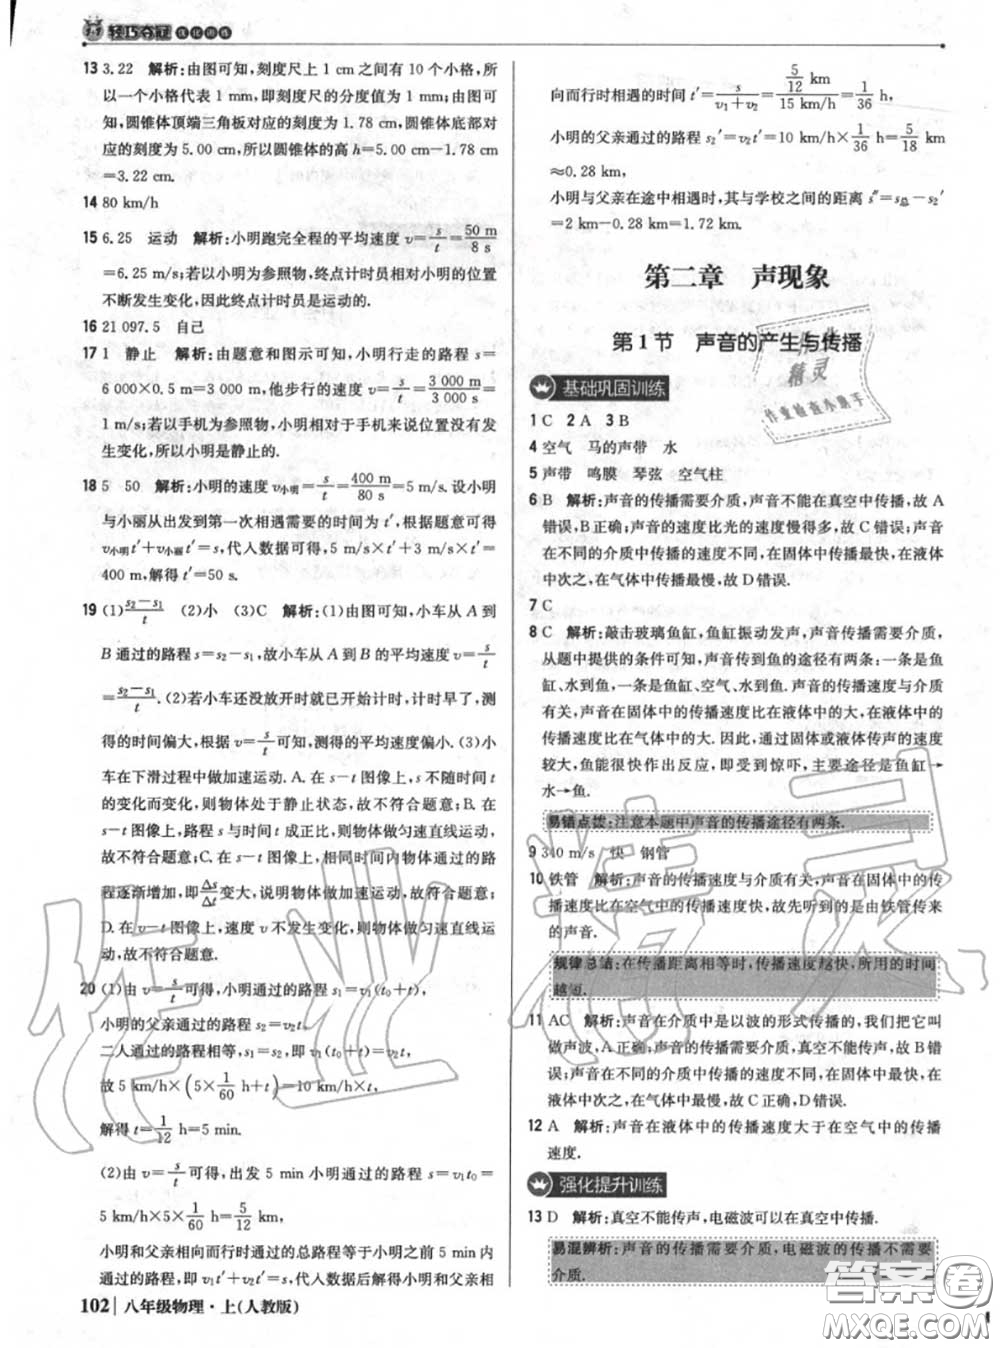 轻巧夺冠 优化训练
13 3.22 解析:由图可知,刻度尺上 1 cm之间有 10 个小格,所
以一个小格代表 1 mm,即刻度尺的分度值为 1 mm;由图可
知,圆锥体顶端三角板对应的刻度为 1.78 cm,圆锥体底部对
应的刻度为 5.00 cm,所以圆锥体的高 h=5.00 cm-1.78 cm
=3.22 cm.
14 80 km/h
15 6.25 运动 解析:小明跑完全程的平均速度 v=s/t=50 m/8 s
=6.25 m/s;若以小明为参照物,终点计时员相对小明的位置
不断发生变化,因此终点计时员是运动的.
16 21 097.5 自己
17 1 静止 解析:由题意和图示可知,小明行走的路程 s=
6 000×0.5 m=3 000 m,他步行的速度 v=s/t=3 000 m/3 000 s=
1 m/s;若以手机为参照物,小明相对于手机来说没有发生变
化,所以小明是静止的.
18 5 50 解析:小明的速度v小明=s/t=400 m/80 s=5 m/s.设小明
与小丽从出发到第一次相遇需要的时间为 t′,根据题意可得
v小明t′+v小丽t′=s,代入数据可得,5 m/s×t′+3 m/s×t′=
400 m,解得 t′=50 s.
19 (1)s₂-s₁/t (2)小 (3)C 解析:(1)由图可知,小车从 A 到
B 通过的路程 s=s₂-s₁,故小车从 A 到 B 的平均速度 v=s/t
=s₂-s₁/t.(2)若小车还没放开时就已计时,计时早了,测
得的时间偏大,根据 v=s/t可知,测得的平均速度偏小.(3)小
车在下滑过程中做加速运动. A. 在 s-t 图像中,s 不随时间 t
的变化而变化,则物体处于静止状态,故不符合题意;B. 在
s-t 图像上,路程 s 与时间 t 成正比,则物体做匀速直线运动,
故不符合题意;C. 在 s-t 图像上,相同时间内物体通过的路
程逐渐增加,即Δs/Δt变大,说明物体做加速运动,故符合题意;
D. 在 v-t 图像上,速度 v 不发生变化,则物体做匀速直线运
动,故不符合题意.
20 (1)由 v=s/t可得,小明通过的路程 s₁=v₁(t₀+t),
小明的父亲通过的路程 s₂=v₂t.
二人通过的路程相等,s₁=s₂,即 v₁(t₀+t)=v₂t,
故 5 km/h×(5×1/60 h+t)=10 km/h×t,
解得 t=1/12 h=5 min.
(2)由 v=s/t可得,出发 5 min 小明通过的路程 s=v₁t₀=
5 km/h×5×1/60 h=5/12 km,
小明和父亲相向而行时通过的总路程等于小明之前 5 min 内
通过的路程,即 v₁t′+v₂t′=s,代入数据后解得小明和父亲相
102 八年级物理·上(人教版)
向而行时相遇的时间 t′=s/v₁+v₂=5/12 km/15 km/h=1/36 h,
小明的父亲通过的路程 s₂′=v₂t′=10 km/h×1/36 h=5/18 km
≈0.28 km.
小明与父亲在途中相遇时,其与学校之间的距离 s″=s总-s₂′
=2 km-0.28 km=1.72 km.
第二章 声现象
第 1 节 声音的产生与传播
基础巩固训练
1 C 2 A 3 B
4 空气 马的声带 水
5 声带 鸣膜 琴弦 空气柱
6 B 解析:声音的传播需要介质,声音不能在真空中传播,故 A
错误,B正确;声音的速度比光的速度慢得多,故 C错误;声音
在不同的介质中传播的速度不同,在固体中传播最快,在液体
中次之,在气体中传播最慢,故 D错误.
7 C
8 C 解析:敲击玻璃鱼缸,鱼缸振动发声,声音传播需要介质,
从题中提供的条件可知,声音传到鱼的途径有两条:一条是鱼
缸、水到鱼,一条是鱼缸、空气、水到鱼.声音的传播速度与介质
有关,声音在固体中的传播速度比在液体中的大,在液体中的
传播速度比在气体中的大. 因此,通过固体或液体传声的速度
较大,鱼能很快作出反应,即受到惊吓,主要途径是鱼缸→
水→鱼.
易错点拨:注意本题中声音的传播途径有两条.
9 340 m/s 快 钢管
10 铁管 解析:声音的传播速度与介质有关,声音在固体中的传
播速度比在空气中的传播速度快,故先听到的是由铁管传来
的声音.
规律总结:在传播距离相等时,传播速度越快,所用的时间
越短.
11 AC 解析:声音在介质中是以波的形式传播的,我们把它叫
做声波,A 正确;声音的传播需要介质,真空不能传声,故 B错
误;声音在不同的介质中传播的速度不同,在固体中最快,在
液体中次之,在气体中最慢,故 C正确,D错误.
12 A 解析:声音在液体中的传播速度大于在空气中的传播
速度.
强化提升训练
13 D 解析:真空不能传声,电磁波可以在真空中传播.
易混辨析:声音的传播需要介质,电磁波的传播不需要
介质.
作业精灵
作业检查小助手
作业精灵
答案卷
MXQE.COM